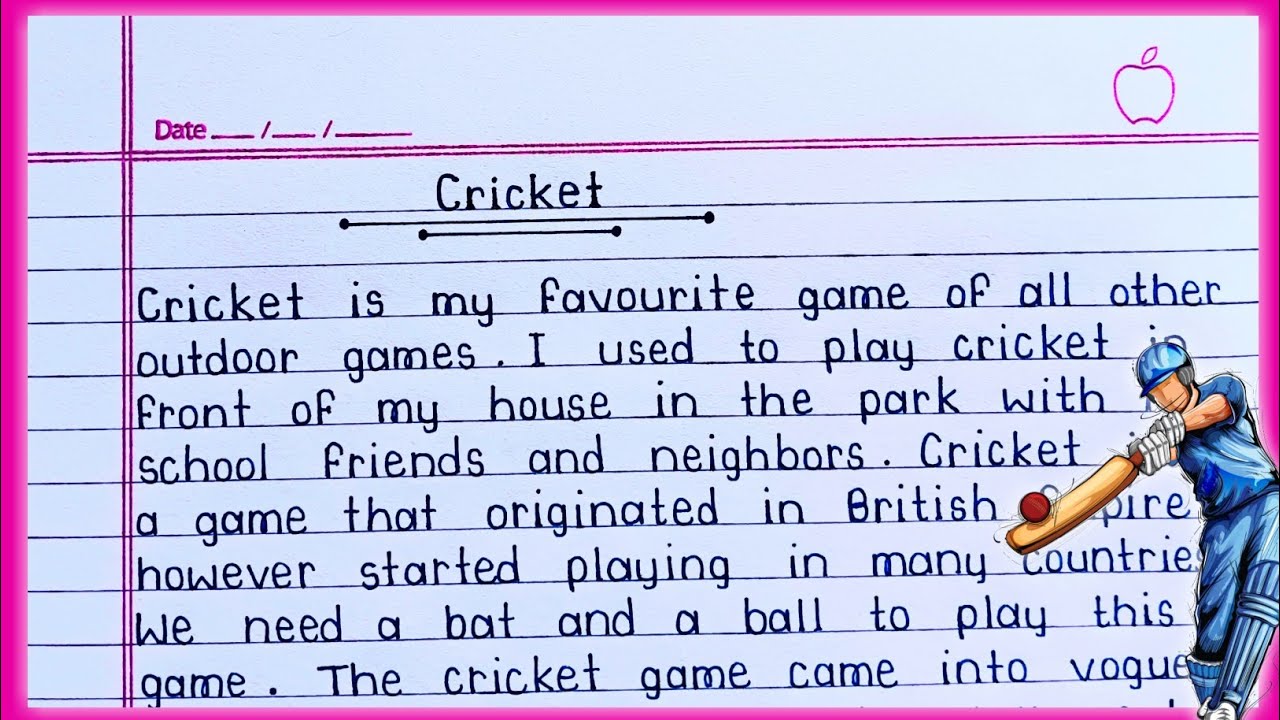 Date __ /__ /____
Cricket
Cricket is my favourite game of all other
outdoor games. I used to play cricket in
front of my house in the park with
school friends and neighbors. Cricket
a game that originated in British Empire
however started playing in many countries
We need a bat and a ball to play this
game. The cricket game came into vogue